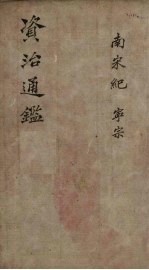 資治通鑑
南宋紀 寧宗